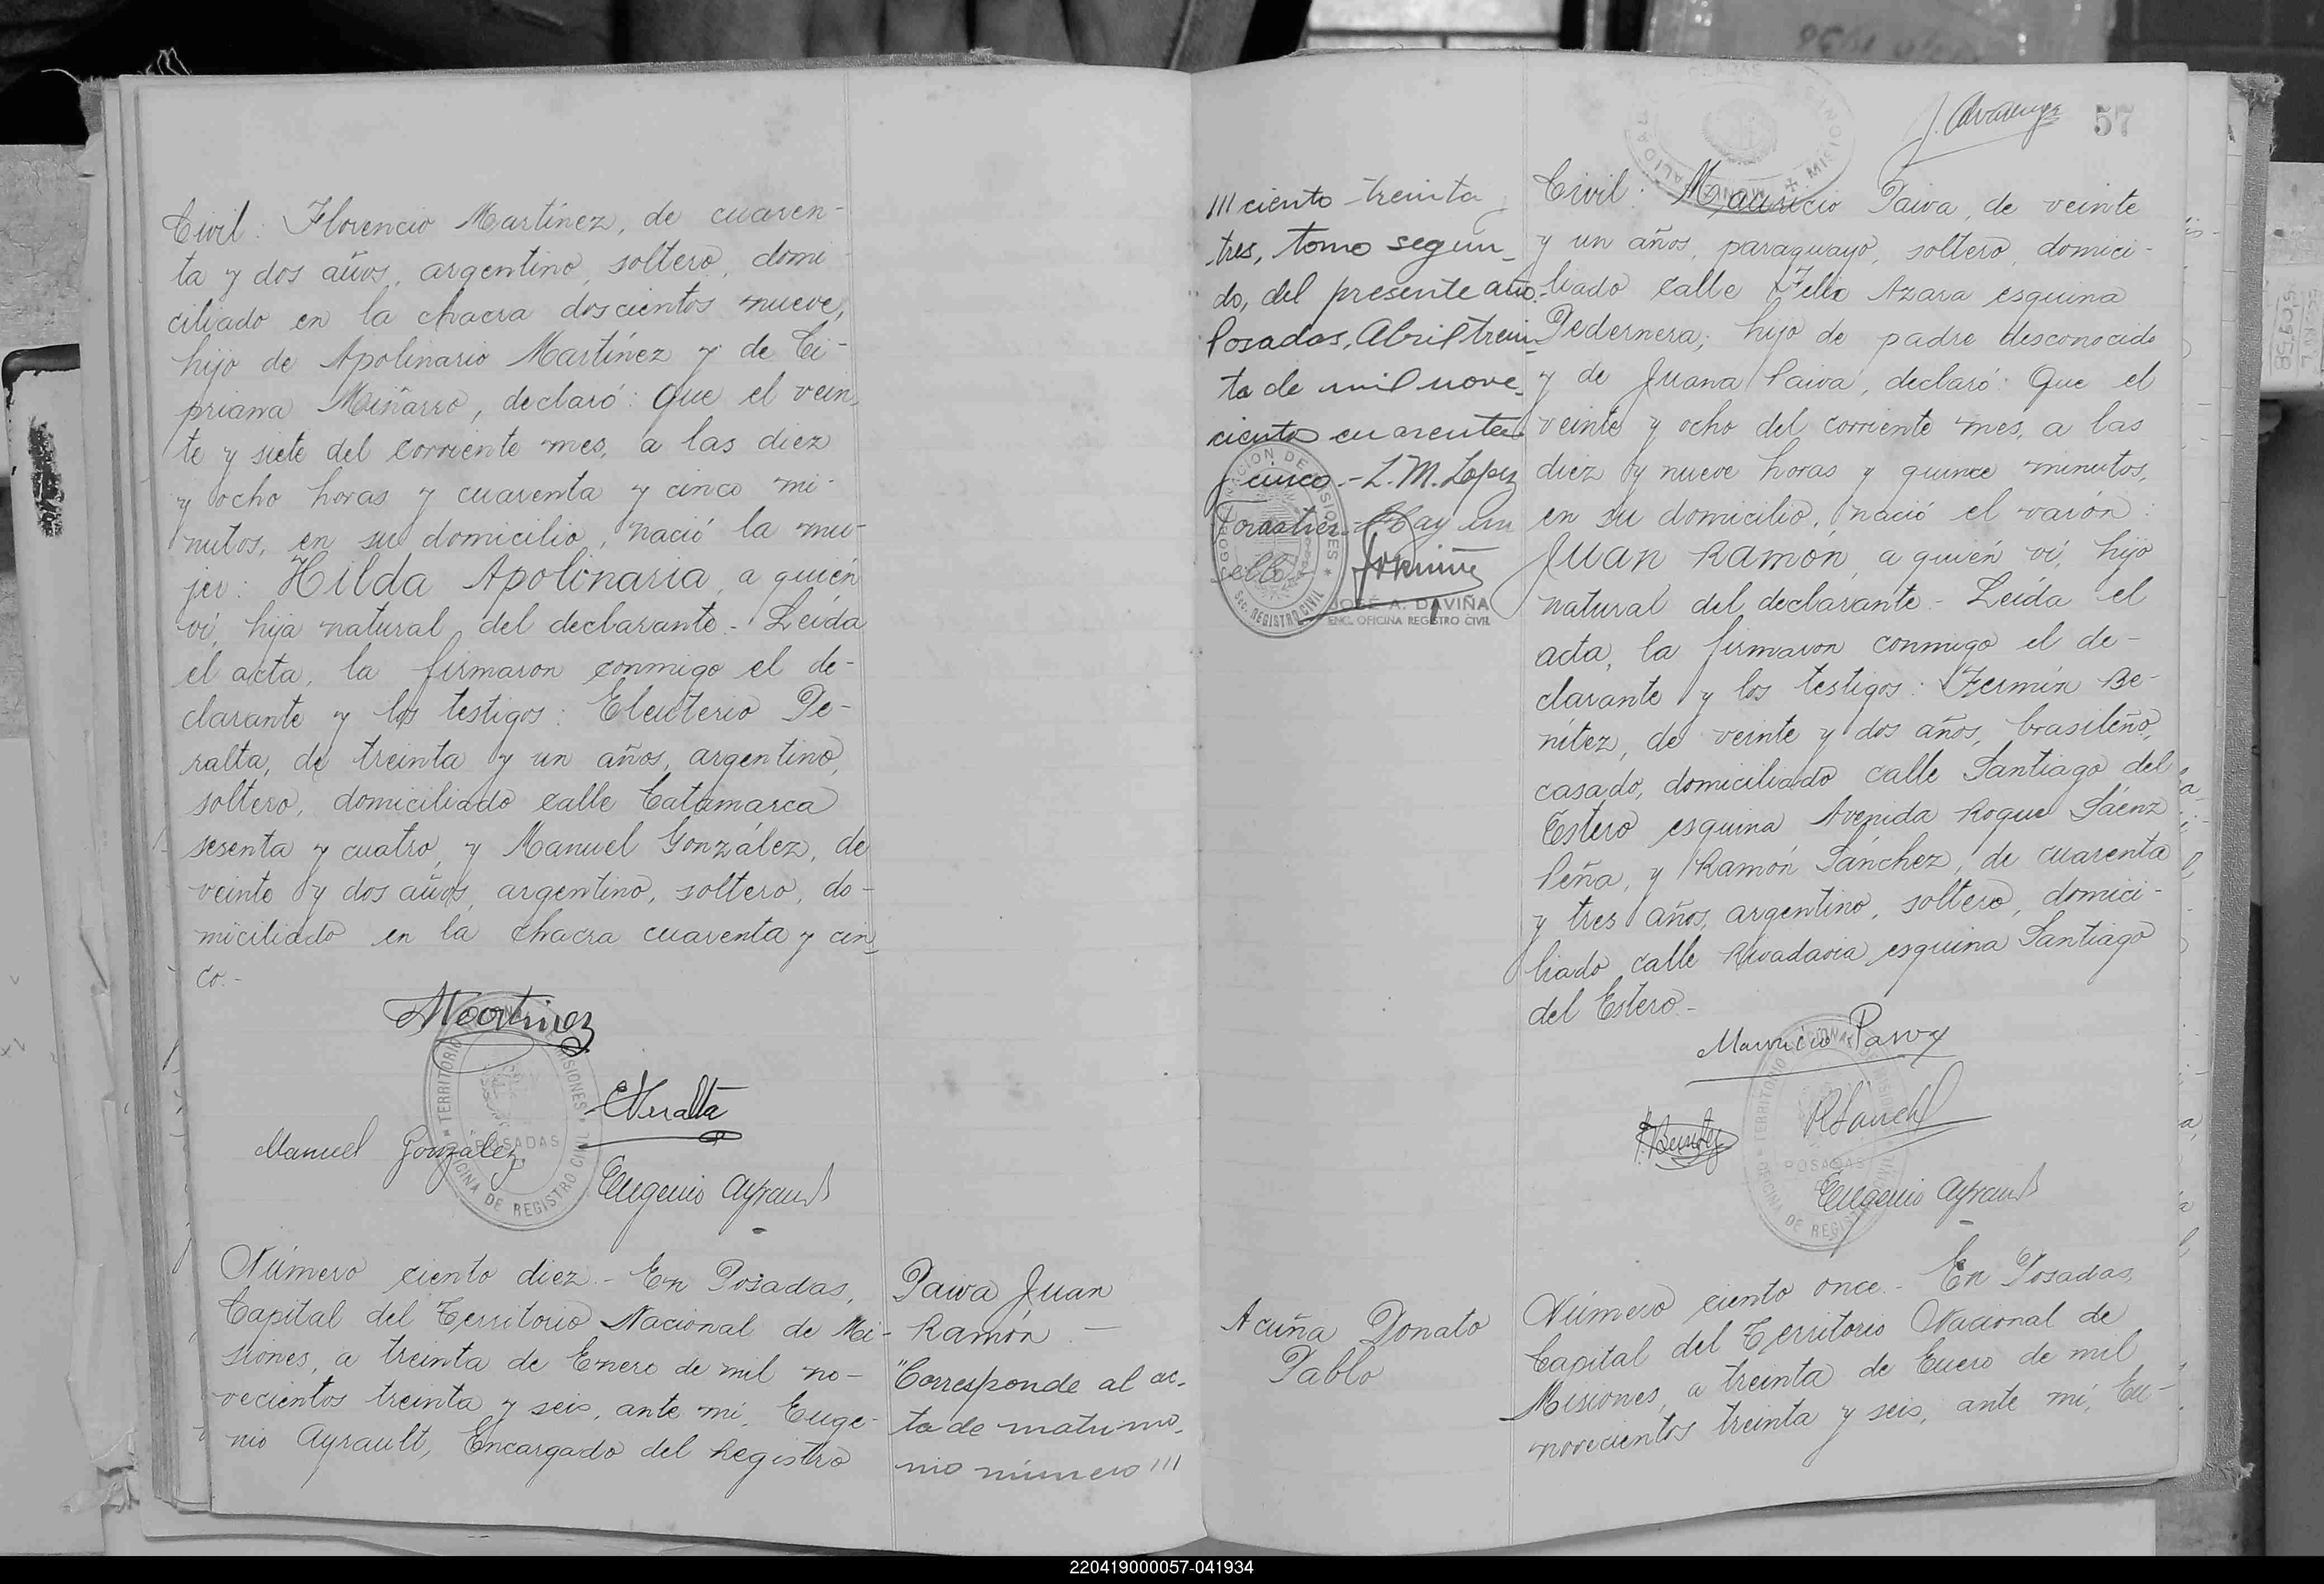 Civil: Florencio Martínez, de cuaren-
ta y dos años, argentino, soltero, domi-
ciliado en la chacra doscientos nueve,
hijo de Apolinario Martínez y de Ci-
priana Miñarro, declaró: Que el vein-
te y siete del corriente mes, a las diez
y ocho horas y cuarenta y cinco mi-
nutos, en su domicilio, nació la mu-
jer: Hilda Apolinaria, a quién
ví, hija natural del declarante.- Leída
el acta, la firmaron conmigo el de-
clarante y los testigos: Eleuterio Pe-
ralta, de treinta y un años, argentino,
soltero, domiciliado calle Catamarca
sesenta y cuatro, y Manuel González, de
veinte y dos años, argentino, soltero, do-
miciliado en la chacra cuarenta y cin-
co.-
Martinez
EPeralta
Manuel González
Eugenio Ayrault
POSADAS
OFICINA DE REGISTRO CIVIL
Número ciento diez.- En Posadas,
Capital del Territorio Nacional de Mi-
siones, a treinta de Enero de mil no-
vecientos treinta y seis, ante mí, Euge-
nio Ayrault, Encargado del Registro
Paiva Juan
Ramón.-
"Corresponde al ac-
ta de matrimo-
nio número ///
57
/// ciento treinta
tres, tomo segun-
do, del presente año.
Posadas, Abril trein-
ta de mil nove-
cientos cuarenta
y cinco.- L. M. Lopez
Forastier.- Hay un
sello
GOBERNACION DE MISIONES
SEC. REGISTRO CIVIL
JOSÉ A. DAVIÑA
ENC. OFICINA REGISTRO CIVIL
Civil: Mauricio Paiva, de veinte
y un años, paraguayo, soltero, domici-
liado calle Felix Azara esquina
Pedernera; hijo de padre desconocido
y de Juana Paiva, declaró: Que el
veinte y ocho del corriente mes, a las
diez y nueve horas y quince minutos,
en su domicilio, nació el varón:
Juan Ramón, a quién ví, hijo
natural del declarante.- Leída el
acta, la firmaron conmigo el de-
clarante y los testigos: Fermín Be-
nítez, de veinte y dos años, brasileño,
casado, domiciliado calle Santiago del
Estero esquina Avenida Roque Sáenz
Peña, y Ramón Sánchez, de cuarenta
y tres años, argentino, soltero, domici-
liado calle Rivadavia esquina Santiago
del Estero.-
Mauricio Paiva
Eugenio Ayrault
POSADAS
Acuña Donato
Pablo
Número ciento once.- En Posadas,
Capital del Territorio Nacional de
Misiones, a treinta de Enero de mil
novecientos treinta y seis, ante mí, Eu-
220419000057-041934